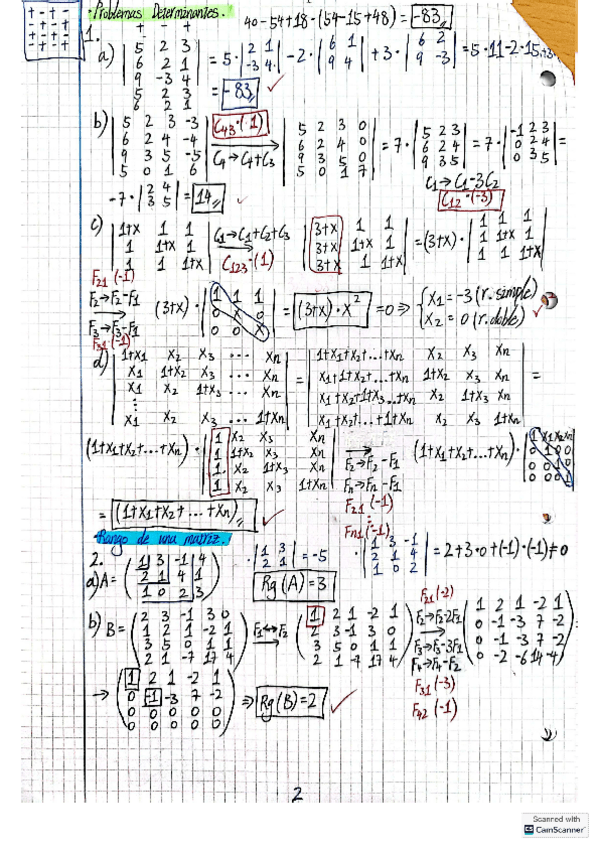 + - + -
- + - +
+ - + -
- + - +
· Problemas Determinantes.
40-54+18-(54-15+48) = -83
1.
+ - +
a) |5 2 3; 6 2 1; 9 -3 4| = 5·|2 1; -3 4| -2·|6 1; 9 4| +3·|6 2; 9 -3| = 5·11-2·15
5 2 3
6 2 1
= -83
b) |5 2 3 -3; 6 2 4 -4; 9 3 5 -5; 5 0 1 6| C43·(1) C4→C4+C3 |5 2 3 0; 6 2 4 0; 9 3 5 0; 5 0 1 7| = 7·|5 2 3; 6 2 4; 9 3 5| = 7·|-1 2 3; 0 2 4; 0 3 5| =
C1→C1-3C2
C12·(-3)
-7·|2 4; 3 5| = 14
c) |1+x 1 1; 1 1+x 1; 1 1 1+x| C1→C1+C2+C3 C123·(1) |3+x 1 1; 3+x 1+x 1; 3+x 1 1+x| = (3+x)·|1 1 1; 1 1+x 1; 1 1 1+x|
F21(-1)
F2→F2-F1
F3→F3-F1
F31(-1)
(3+x)·|1 1 1; 0 x 0; 0 0 x| = (3+x)·x² = 0 ⇒ {x1 = -3 (r. simple)
x2 = 0 (r. doble)
d) |1+x1 x2 x3 ... xn; x1 1+x2 x3 ... xn; x1 x2 1+x3 ... xn; ⋮; x1 x2 x3 ... 1+xn| = |1+x1+x2+...+xn x2 x3 xn; x1+1+x2+...+xn 1+x2 x3 xn; x1+x2+1+x3...+xn x2 1+x3 xn; x1+x2+...+1+xn x2 x3 1+xn| =
(1+x1+x2+...+xn)·|1 x2 x3 xn; 1 1+x2 x3 xn; 1 x2 1+x3 xn; 1 x2 x3 1+xn| F2→F2-F1 Fn→Fn-F1 (1+x1+x2+...+xn)·|1 x1 x2 xn; 0 1 0 0; 0 0 1 0; 0 0 0 1|
F21(-1)
⋮
Fn1(-1)
= (1+x1+x2+...+xn)
Rango de una matriz.
2.
a) A = (1 3 -1 4; 2 1 4 1; 1 0 2 3) |1 3; 2 1| = -5 · |1 3 -1; 2 1 4; 1 0 2| = 2+3·0+(-1)·(-1)≠0
Rg(A)=3
b) B = (2 3 -1 3 0; 1 2 1 -2 1; 3 5 0 1 1; 2 1 -7 17 4) F1↔F2 (1 2 1 -2 1; 2 3 -1 3 0; 3 5 0 1 1; 2 1 -7 17 4) F21(-2) F2→F2-2F1 F3→F3-3F1 F4→F4-F2 (1 2 1 -2 1; 0 -1 -3 7 -2; 0 -1 -3 7 -2; 0 -2 -6 14 -4)
F31(-3)
F42(-1)
→ (1 2 1 -2 1; 0 -1 -3 7 -2; 0 0 0 0 0; 0 0 0 0 0) ⇒ Rg(B)=2
2
Scanned with
CS CamScanner